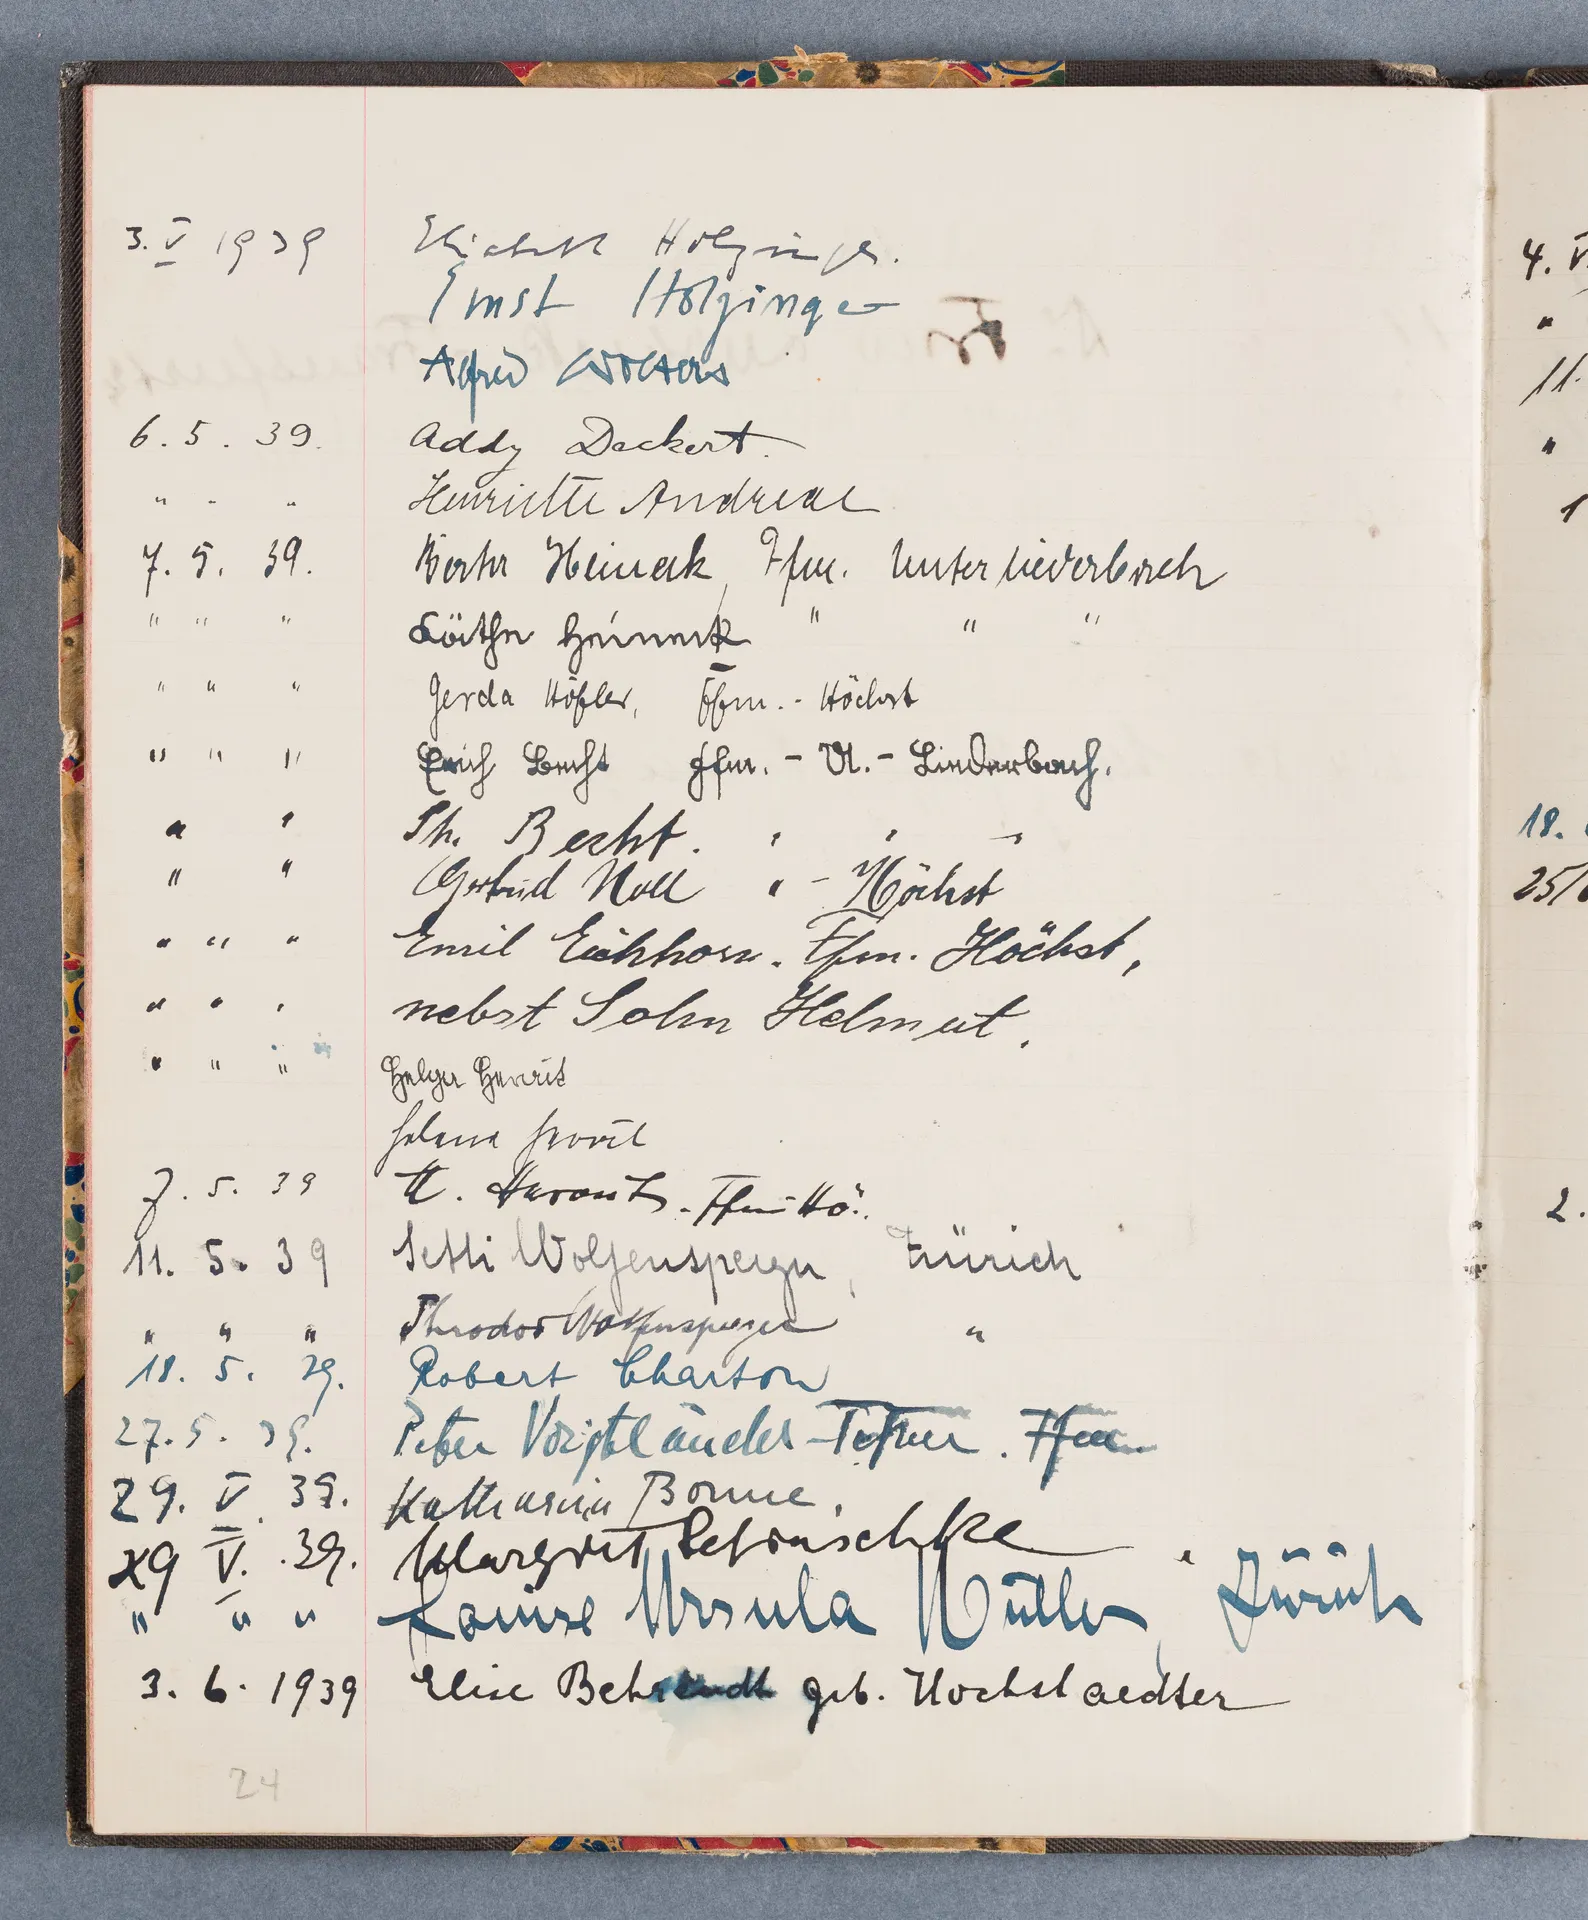 3. V 1939 Elisabeth Holzinger.
Ernst Holzinger
Alfred Wolters
6. 5. 39. Addy Deckert.
" " " Henriette Andreae
7. 5. 39. Heineck, Ffm. Unterliederbach
" " " Käthe Heineck " " "
" " " Gerda Höfler, Ffm.-Höchst
" " " Erich Becht Ffm.-U.-Liederbach.
" " Th. Becht. " " "
" " Gertrud Noll " - Höchst
" " " Emil Eichhorn. Ffm. Höchst,
" " " nebst Sohn Helmut.
" " " Helga
7. 5. 39 Ffm-Hö.
11. 5. 39 Setti Wolfensperger, Zürich
" " " Theodor Wolfensperger "
18. 5. 39. Robert Charton
27. 5. 39. Peter Voigtländer-Tetzner. Ffm
29. V. 39. Katharina Bonne,
29 V. 39. Margrit
" " " Louise Ursula Müller, Zürich
3. 6. 1939 Elise Behrendt geb. Hochstaedter
24
4. V
"
11.
"
1
18.
25/
2.